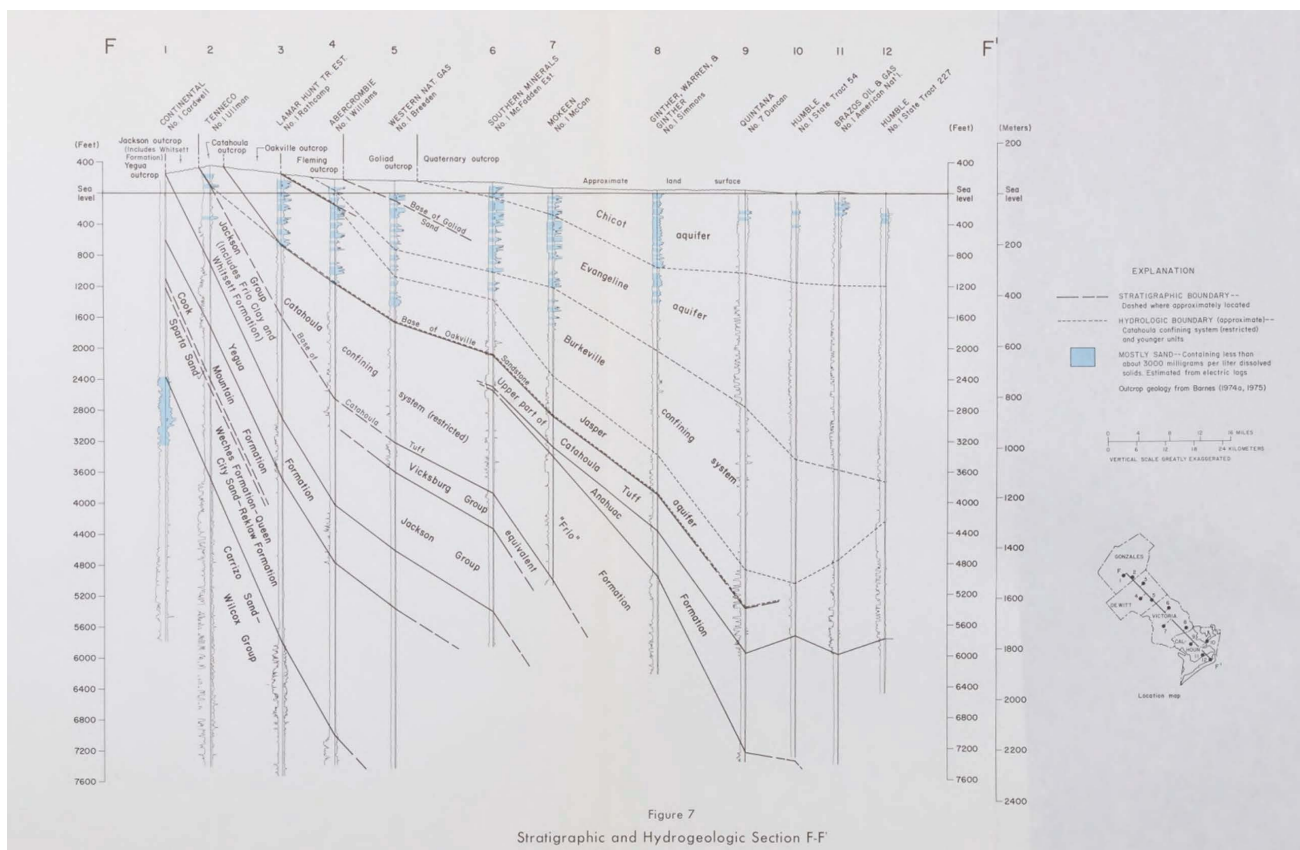 F
F'
1
2
3
4
5
6
7
8
9
10
11
12
CONTINENTAL
No. 1 Cardwell
TENNECO
No. 1 Ullman
LAMAR HUNT TR. EST.
No. 1 Rathcamp
ABERCROMBIE
No. 1 Williams
WESTERN NAT. GAS
No. 1 Breeden
SOUTHERN MINERALS
No. 1 McFadden Est.
MOKEEN
No. 1 McCan
GINTHER, WARREN, &
GINTHER
No. 1 Simmons
QUINTANA
No. 7 Duncan
HUMBLE
No. 1 State Tract 54
BRAZOS OIL & GAS
No. 1 American Nat'l.
HUMBLE
No. 1 State Tract 227
(Feet)
400
Sea
level
400
800
1200
1600
2000
2400
2800
3200
3600
4000
4400
4800
5200
5600
6000
6400
6800
7200
7600
Jackson outcrop
(Includes Whitsett
Formation)
Yegua
outcrop
Catahoula
outcrop
Oakville outcrop
Fleming
outcrop
Goliad
outcrop
Quaternary outcrop
Approximate land surface
Base of Goliad
Sand
Chicot aquifer
Evangeline aquifer
Burkeville confining system
Jasper aquifer
Base of Oakville Sandstone
Catahoula confining system (restricted)
Base of Catahoula Tuff
Upper part of Catahoula Tuff
Anahuac Formation
"Frio" Formation
Vicksburg Group equivalent
Jackson Group
Jackson Group
(Includes Frio Clay and
Whitsett Formation)
Yegua Formation
Cook Mountain Formation
Sparta Sand
Weches Formation-Queen
City Sand-Reklaw Formation
Carrizo Sand-
Wilcox Group
(Feet)
400
Sea
level
400
800
1200
1600
2000
2400
2800
3200
3600
4000
4400
4800
5200
5600
6000
6400
6800
7200
7600
(Meters)
200
Sea
level
200
400
600
800
1000
1200
1400
1600
1800
2000
2200
2400
EXPLANATION
STRATIGRAPHIC BOUNDARY--
Dashed where approximately located
HYDROLOGIC BOUNDARY (approximate)--
Catahoula confining system (restricted)
and younger units
MOSTLY SAND--Containing less than
about 3000 milligrams per liter dissolved
solids. Estimated from electric logs
Outcrop geology from Barnes (1974a, 1975)
0 4 8 12 16 MILES
0 6 12 18 24 KILOMETERS
VERTICAL SCALE GREATLY EXAGGERATED
GONZALES
DEWITT
VICTORIA
CALHOUN
Location map
Figure 7
Stratigraphic and Hydrogeologic Section F-F'